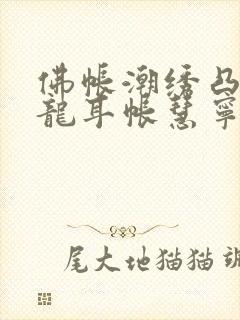 佛帐潮绣凸
龍耳帐慧寧
尾大地猫猫